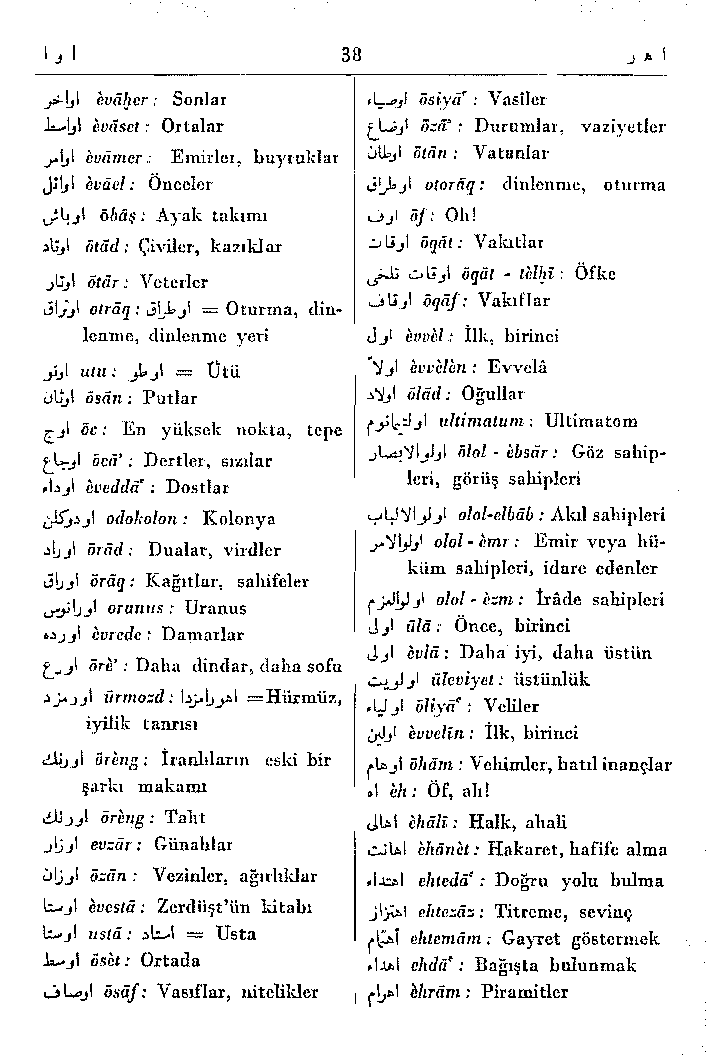 اوا
38
اهر
اواخر èvāḫer : Sonlar
اواسط èvāset : Ortalar
اوامر èvāmer : Emirler, buyruklar
اوائل èvāel : Önceler
اوباش ōbāş : Ayak takımı
اوتاد ōtād : Çiviler, kazıklar
اوتار ōtār : Veterler
اوتراق otrāq : اوطراق = Oturma, din-
lenme, dinlenme yeri
اوتو utu : اوطو = Ütü
اوثان ōsān : Putlar
اوج ōc : En yüksek nokta, tepe
اوجاع ōcā’ : Dertler, sızılar
اوداء èveddā’ : Dostlar
اودوكلن odokolon : Kolonya
اوراد ōrād : Dualar, virdler
اوراق ōrāq : Kağıtlar, sahifeler
اورانوس oranus : Uranus
اورده èvrede : Damarlar
اورع ōrè’ : Daha dindar, daha sofu
اورمزد ürmozd : اهورامزدا =Hürmüz,
iyilik tanrısı
اورنك ōrèng : İranlıların eski bir
şarkı makamı
اورنك ōrèng : Taht
اوزار evzār : Günahlar
اوزان ōzān : Vezinler, ağırlıklar
اوستا èvestā : Zerdüşt’ün kitabı
اوستا ustā : استاد = Usta
اوسط ōsèt : Ortada
اوصاف ōsāf : Vasıflar, nitelikler
اوصياء ōsiyā’ : Vasîler
اوضاع ōzā’ : Durumlar, vaziyetler
اوطان ōtān : Vatanlar
اوطراق otorāq : dinlenme, oturma
اوف ōf : Oh!
اوقات ōqāt : Vakıtlar
اوقات تلخى ōqāt - tèlḫī : Öfke
اوقاف ōqāf : Vakıflar
اول èvvèl : İlk, birinci
اولاً èvvèlèn : Evvelâ
اولاد ōlād : Oğullar
اولتيماتوم ultimatum : Ultimatom
اولوالابصار ōlol - èbsār : Göz sahip-
leri, görüş sahipleri
اولوالالباب olol-elbāb : Akıl sahipleri
اولوالامر olol - èmr : Emir veya hü-
küm sahipleri, idare edenler
اولوالعزم olol - èzm : İrâde sahipleri
اولى ūlā : Önce, birinci
اولى èvlā : Daha iyi, daha üstün
اولويت ūleviyet : üstünlük
اولياء ōliyā’ : Veliler
اولين èvvelīn : İlk, birinci
اوهام ōhām : Vehimler, batıl inançlar
اه èh : Öf, ah!
اهالى èhālī : Halk, ahali
اهانت èhānèt : Hakaret, hafife alma
اهتداء ehtedā’ : Doğru yolu bulma
اهتزاز ehtezāz : Titreme, sevinç
اهتمام ehtemām : Gayret göstermek
اهداء ehdā’ : Bağışta bulunmak
اهرام èhrām : Piramitler